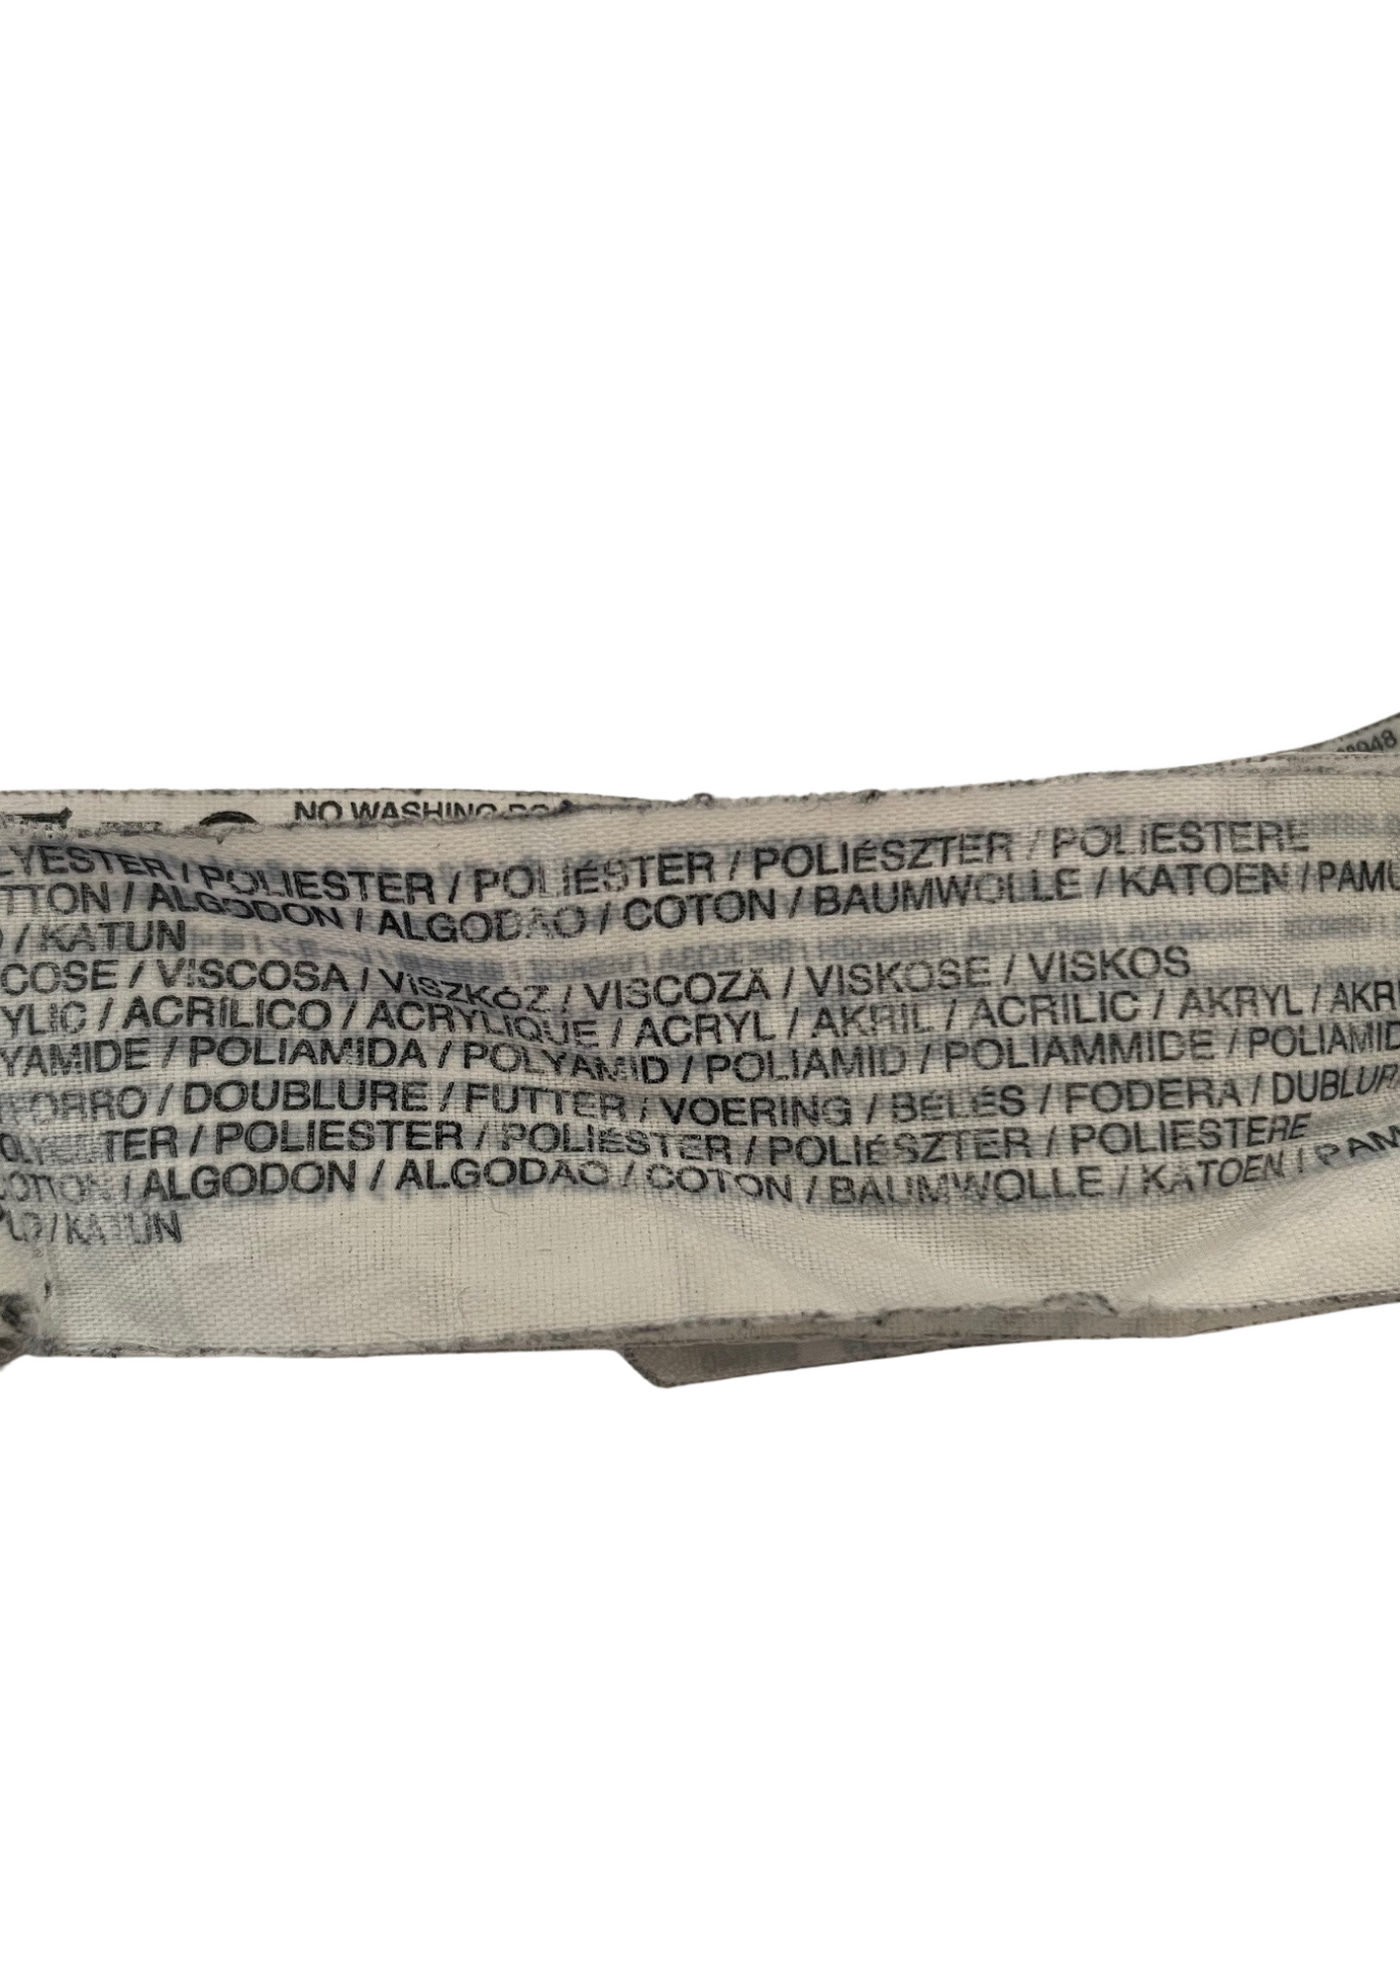 948
NO WASHING
LYESTER / POLIESTER / POLIÉSTER / POLIÉSZTER / POLIESTERE
TTON / ALGODON / ALGODAO / COTON / BAUMWOLLE / KATOEN / PAMU
/ KATUN
COSE / VISCOSA / VISZKÓZ / VISCOZĂ / VISKOSE / VISKOS
YLIC / ACRÍLICO / ACRYLIQUE / ACRYL / AKRIL / ACRILIC / AKRYL / AKRI
YAMIDE / POLIAMIDA / POLYAMID / POLIAMID / POLIAMMIDE / POLIAMID
FORRO / DOUBLURE / FUTTER / VOERING / BÉLÉS / FODERA / DUBLUR
OLYESTER / POLIESTER / POLIÉSTER / POLIÉSZTER / POLIESTERE
COTTON / ALGODON / ALGODAO / COTON / BAUMWOLLE / KATOEN / PAM
/ KATUN